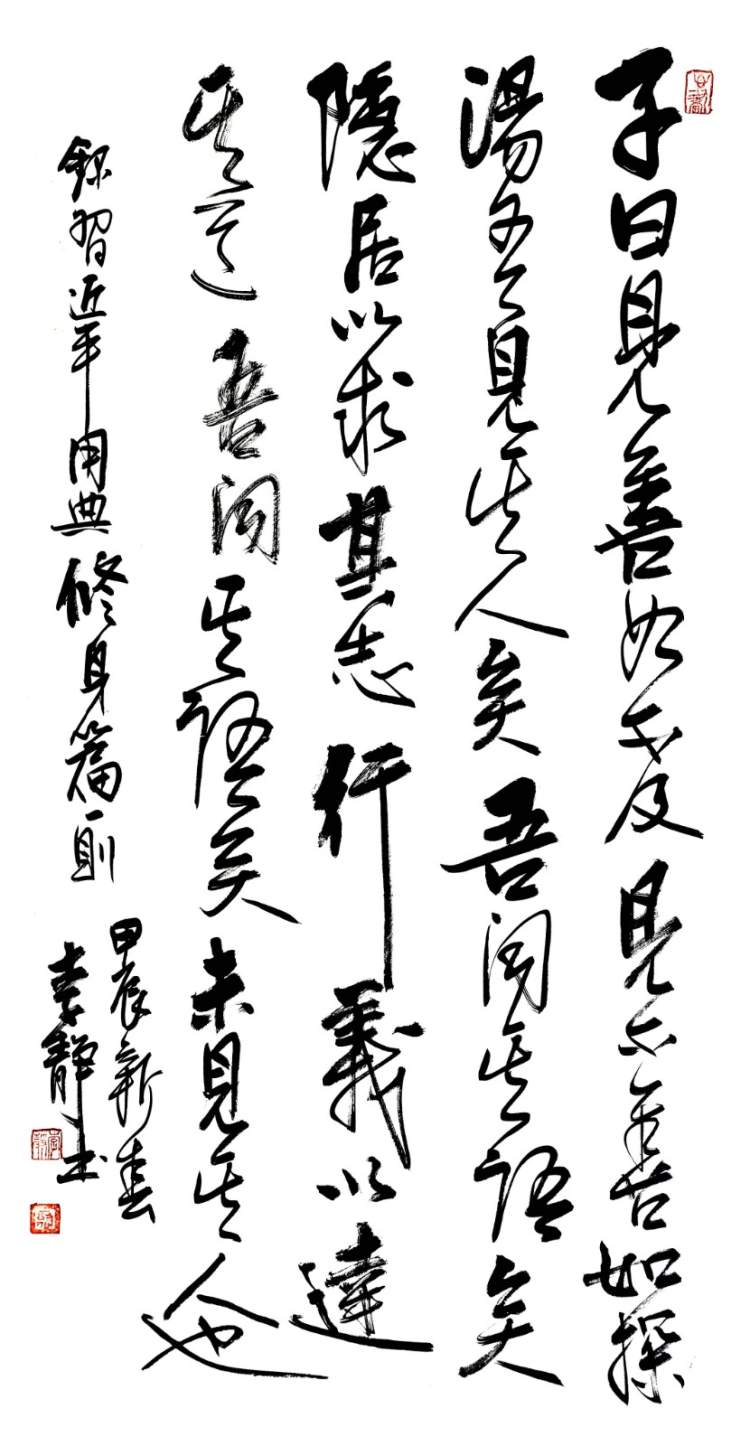 子曰見善如不及見不善如探
湯吾見其人矣吾聞其語矣
隱居以求其志行義以達
其道吾聞其語矣未見其人也
錄習近平用典修身篇一則
甲辰新春
李靜书